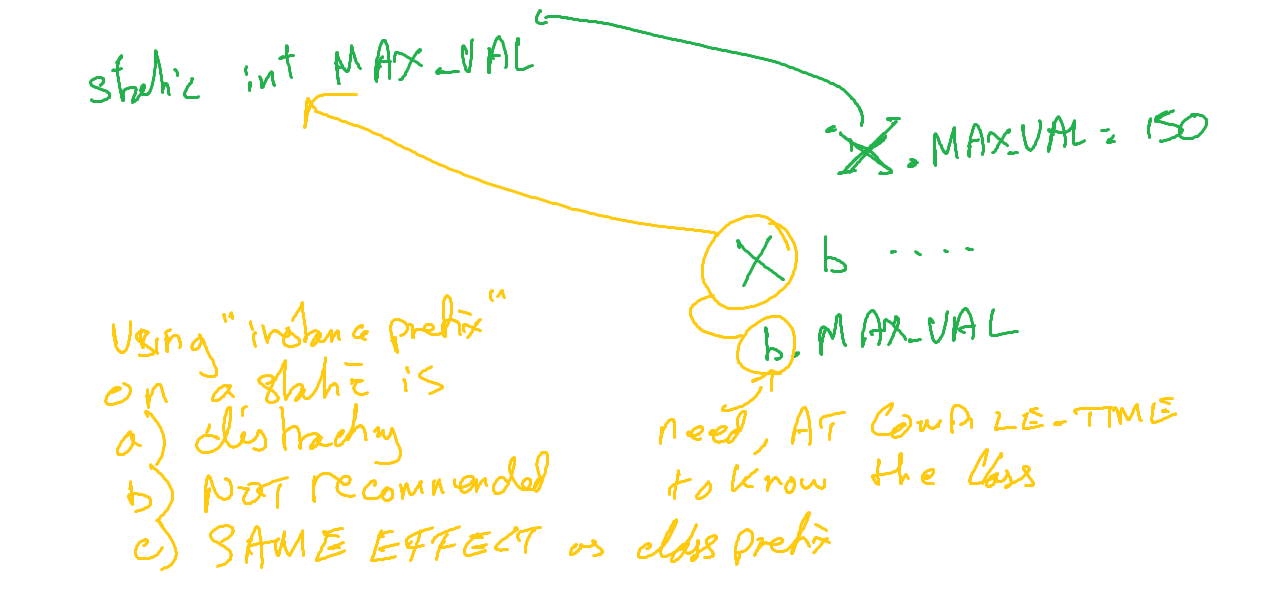 static int MAX_VAL
X.MAX_VAL = 150
X b ....
b.MAX_VAL
Using "instance prefix"
on a static is
a) distracting
b) NOT recommended
c) SAME EFFECT as class prefix
need, AT COMPILE-TIME
to know the class